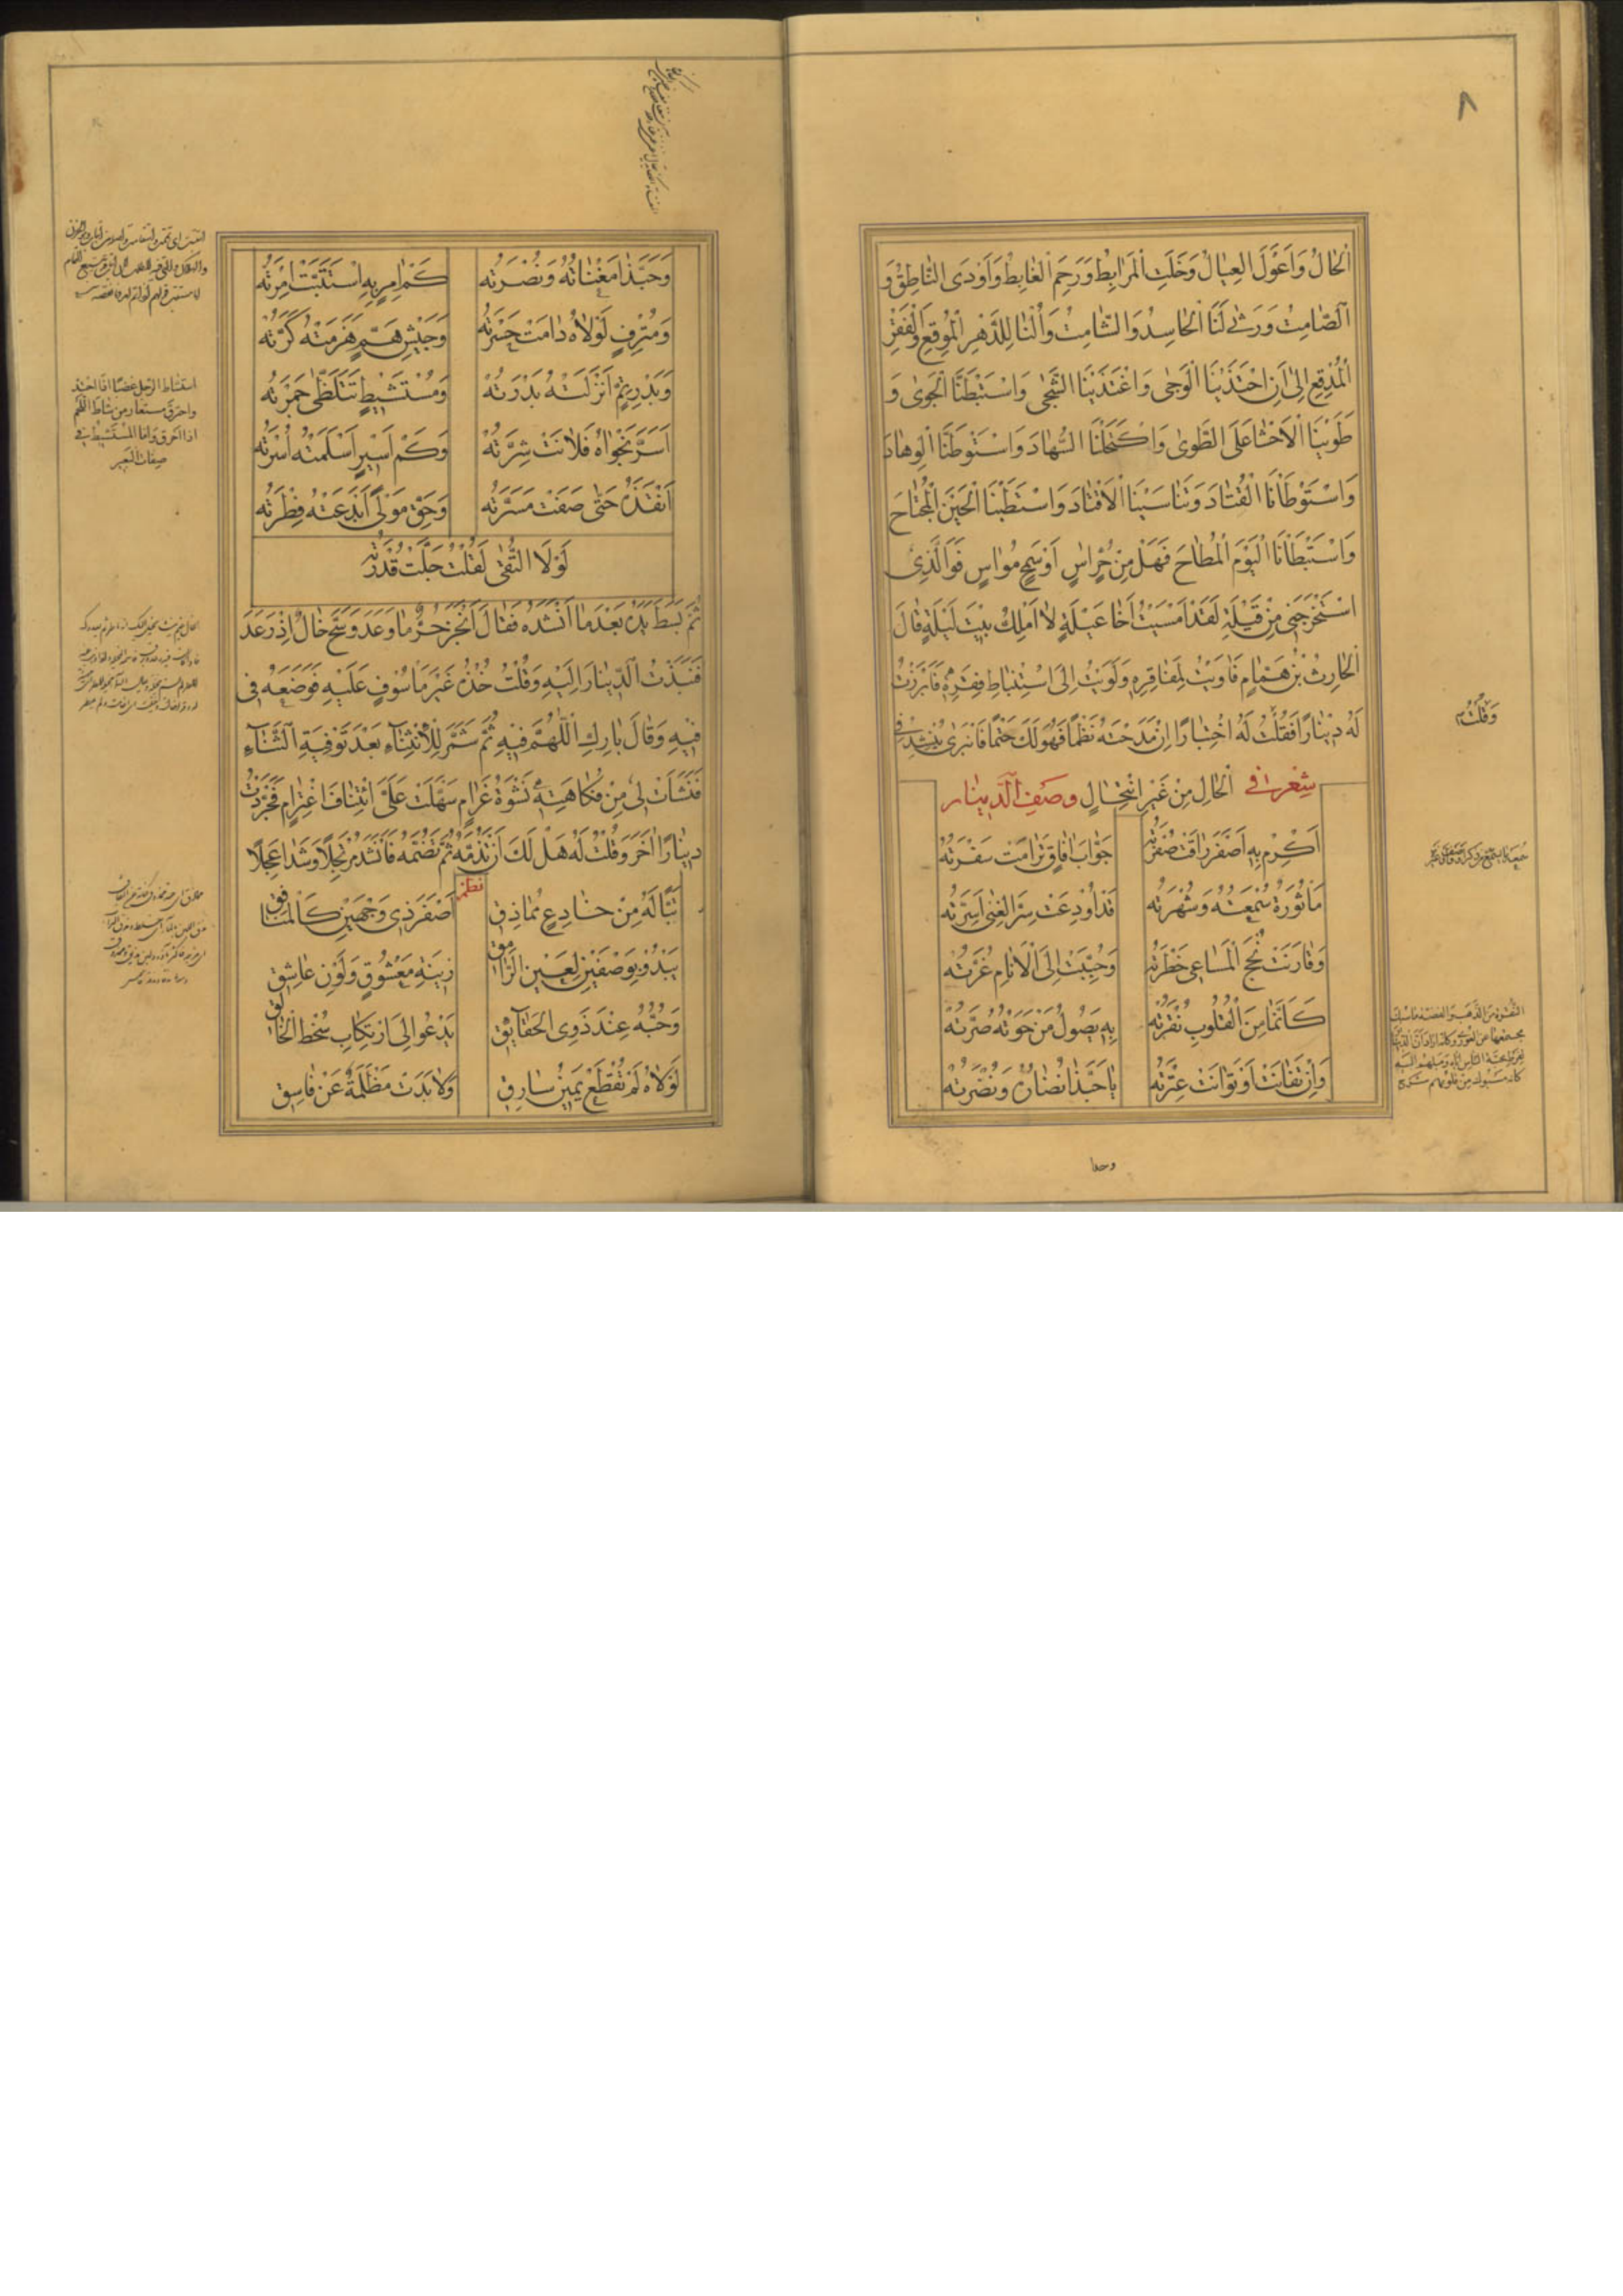 ٨
اَلْحَالُ وَاَعْوَلَ الْعِيَالُ وَخَلَتِ الْمَرَابِطُ وَرَحِمَ الْغَابِطُ وَاَوْدَى النَّاطِقُ وَ
الصَّامِتُ وَرَثٰى لَنَا الْحَاسِدُ وَالشَّامِتُ وَاُلْنَا لِلدَّهْرِ الْمُوقِعِ وَالْفَقْرِ
الْمُدْقِعِ اِلٰى اَنِ احْتَذَيْنَا الْوَجٰى وَاغْتَذَيْنَا الشَّجٰى وَاسْتَبْطَنَّا الْجَوٰى وَ
طَوَيْنَا الْاَحْشَا عَلَى الطَّوٰى وَاكْتَحَلْنَا السُّهَادَ وَاسْتَوْطَنَّا الْوِهَادَ
وَاسْتَوْطَاْنَا الْقَتَادَ وَتَنَاسَيْنَا الْاَقْتَادَ وَاسْتَطَبْنَا الْحَيْنَ الْمُجْتَاحَ
وَاسْتَبْطَاْنَا الْيَوْمَ الْمُتَاحَ فَهَلْ مِنْ حُرٍّ اٰسٍ اَوْ سَمْحٍ مُوَاسٍ فَوَالَّذِى
اسْتَخْرَجَنِى مِنْ قَيْلَةَ لَقَدْ اَمْسَيْتُ اَخَا عَيْلَةٍ لَا اَمْلِكُ بَيْتَ لَيْلَةٍ قَالَ
الْحَارِثُ بْنُ هَمَّامٍ فَاَوَيْتُ لِمَفَاقِرِهِ وَلَوَيْتُ اِلَى اسْتِنْبَاطِ فِقَرِهِ فَاَبْرَزْتُ
لَهُ دِينَارًا فَقُلْتُ لَهُ اخْتِبَارًا اِنْ مَدَحْتَهُ نَظْمًا فَهُوَ لَكَ حَتْمًا فَانْبَرٰى يُنْشِدُ فِى
شِعْرٌ فى الْحَالِ مِنْ غَيْرِ انْتِحَالٍ وصف الدينار
اَكْرِمْ بِهِ اَصْفَرَ رَاقَتْ صُفْرَتُه جَوَّابَ اٰفَاقٍ تَرَامَتْ سَفْرَتُهُ
مَاْثُورَةٌ سُمْعَتُهُ وَشُهْرَتُه قَدْ اُودِعَتْ سِرَّ الْغِنٰى اَسِرَّتُه
وَقَارَنَتْ نُجْحَ الْمَسَاعِى خَطْرَتُه وَحُبِّبَتْ اِلَى الْاَنَامِ غُرَّتُه
كَاَنَّمَا مِنَ الْقُلُوبِ نُقْرَتُه بِهِ يَصُولُ مَنْ حَوَتْهُ صُرَّتُه
وَاِنْ تَفَانَتْ اَوْ تَوَانَتْ عِتْرَتُه يَا حَبَّذَا نُضَارُهُ وَنَضْرَتُه
وَقُلْتُ
وحبذا
وَحَبَّذَا مَغْنَاتُهُ وَنُصْرَتُه كَمْ اٰمِرٍ بِهِ اسْتَتَبَّتْ اِمْرَتُه
وَمُتْرَفٍ لَوْلَاهُ دَامَتْ حَسْرَتُه وَجَيْشِ هَمٍّ هَزَمَتْهُ كَرَّتُه
وَبَدْرِ تِمٍّ اَنْزَلَتْهُ بَدْرَتُهُ وَمُسْتَشِيطٍ تَتَلَظّٰى جَمْرَتُه
اَسَرَّ نَجْوَاهُ فَلَانَتْ شِرَّتُهُ وَكَمْ اَسِيرٍ اَسْلَمَتْهُ اُسْرَتُه
اَنْقَذَهُ حَتّٰى صَفَتْ مَسَرَّتُه وَحَقِّ مَوْلًى اَبْدَعَتْهُ فِطْرَتُه
لَوْلَا التُّقٰى لَقُلْتُ جَلَّتْ قُدْرَتُه
ثُمَّ بَسَطَ يَدَهُ بَعْدَمَا اَنْشَدَهُ فَقَالَ اَنْجَزَ حُرٌّ مَا وَعَدَ وَسَحَّ خَالٌ اِذْ رَعَدَ
فَنَبَذْتُ الدِّينَارَ اِلَيْهِ وَقُلْتُ خُذْهُ غَيْرَ مَاْسُوفٍ عَلَيْهِ فَوَضَعَهُ فِى
فِيهِ وَقَالَ بَارِكِ اللّٰهُمَّ فِيهِ ثُمَّ شَمَّرَ لِلْاِنْثِنَاءِ بَعْدَ تَوْفِيَةِ الثَّنَاءِ
فَنَشَاَتْ لِى مِنْ فُكَاهَتِهِ نَشْوَةُ غَرَامٍ سَهَّلَتْ عَلَىَّ ائْتِنَافَ اغْتِرَامٍ فَجَرَّدْتُ
دِينَارًا اٰخَرَ وَقُلْتُ لَهُ هَلْ لَكَ اَنْ تَذُمَّهُ ثُمَّ تَضُمَّهُ فَاَنْشَدَ مُرْتَجِلًا وَشَدَا عَجِلًا
نظم
تَبًّا لَهُ مِنْ خَادِعٍ مُمَاذِقٍ اَصْفَرَ ذِى وَجْهَيْنِ كَالْمُنَافِقِ
يَبْدُو بِوَصْفَيْنِ لِعَيْنِ الرَّامِقِ زِينَةِ مَعْشُوقٍ وَلَوْنِ عَاشِقِ
وَحُبُّهُ عِنْدَ ذَوِى الْحَقَايِقِ يَدْعُو اِلَى ارْتِكَابِ سُخْطِ الْخَالِقِ
لَوْلَاهُ لَمْ تُقْطَعْ يَمِينُ سَارِقٍ وَلَا بَدَتْ مَظْلَمَةٌ عَنْ فَاسِقِ
استشاط الرجل غضبا اذا احتد
واحترق مستعار من شاط اللحم
اذا احترق واما المستشيط فى
صفات البعير